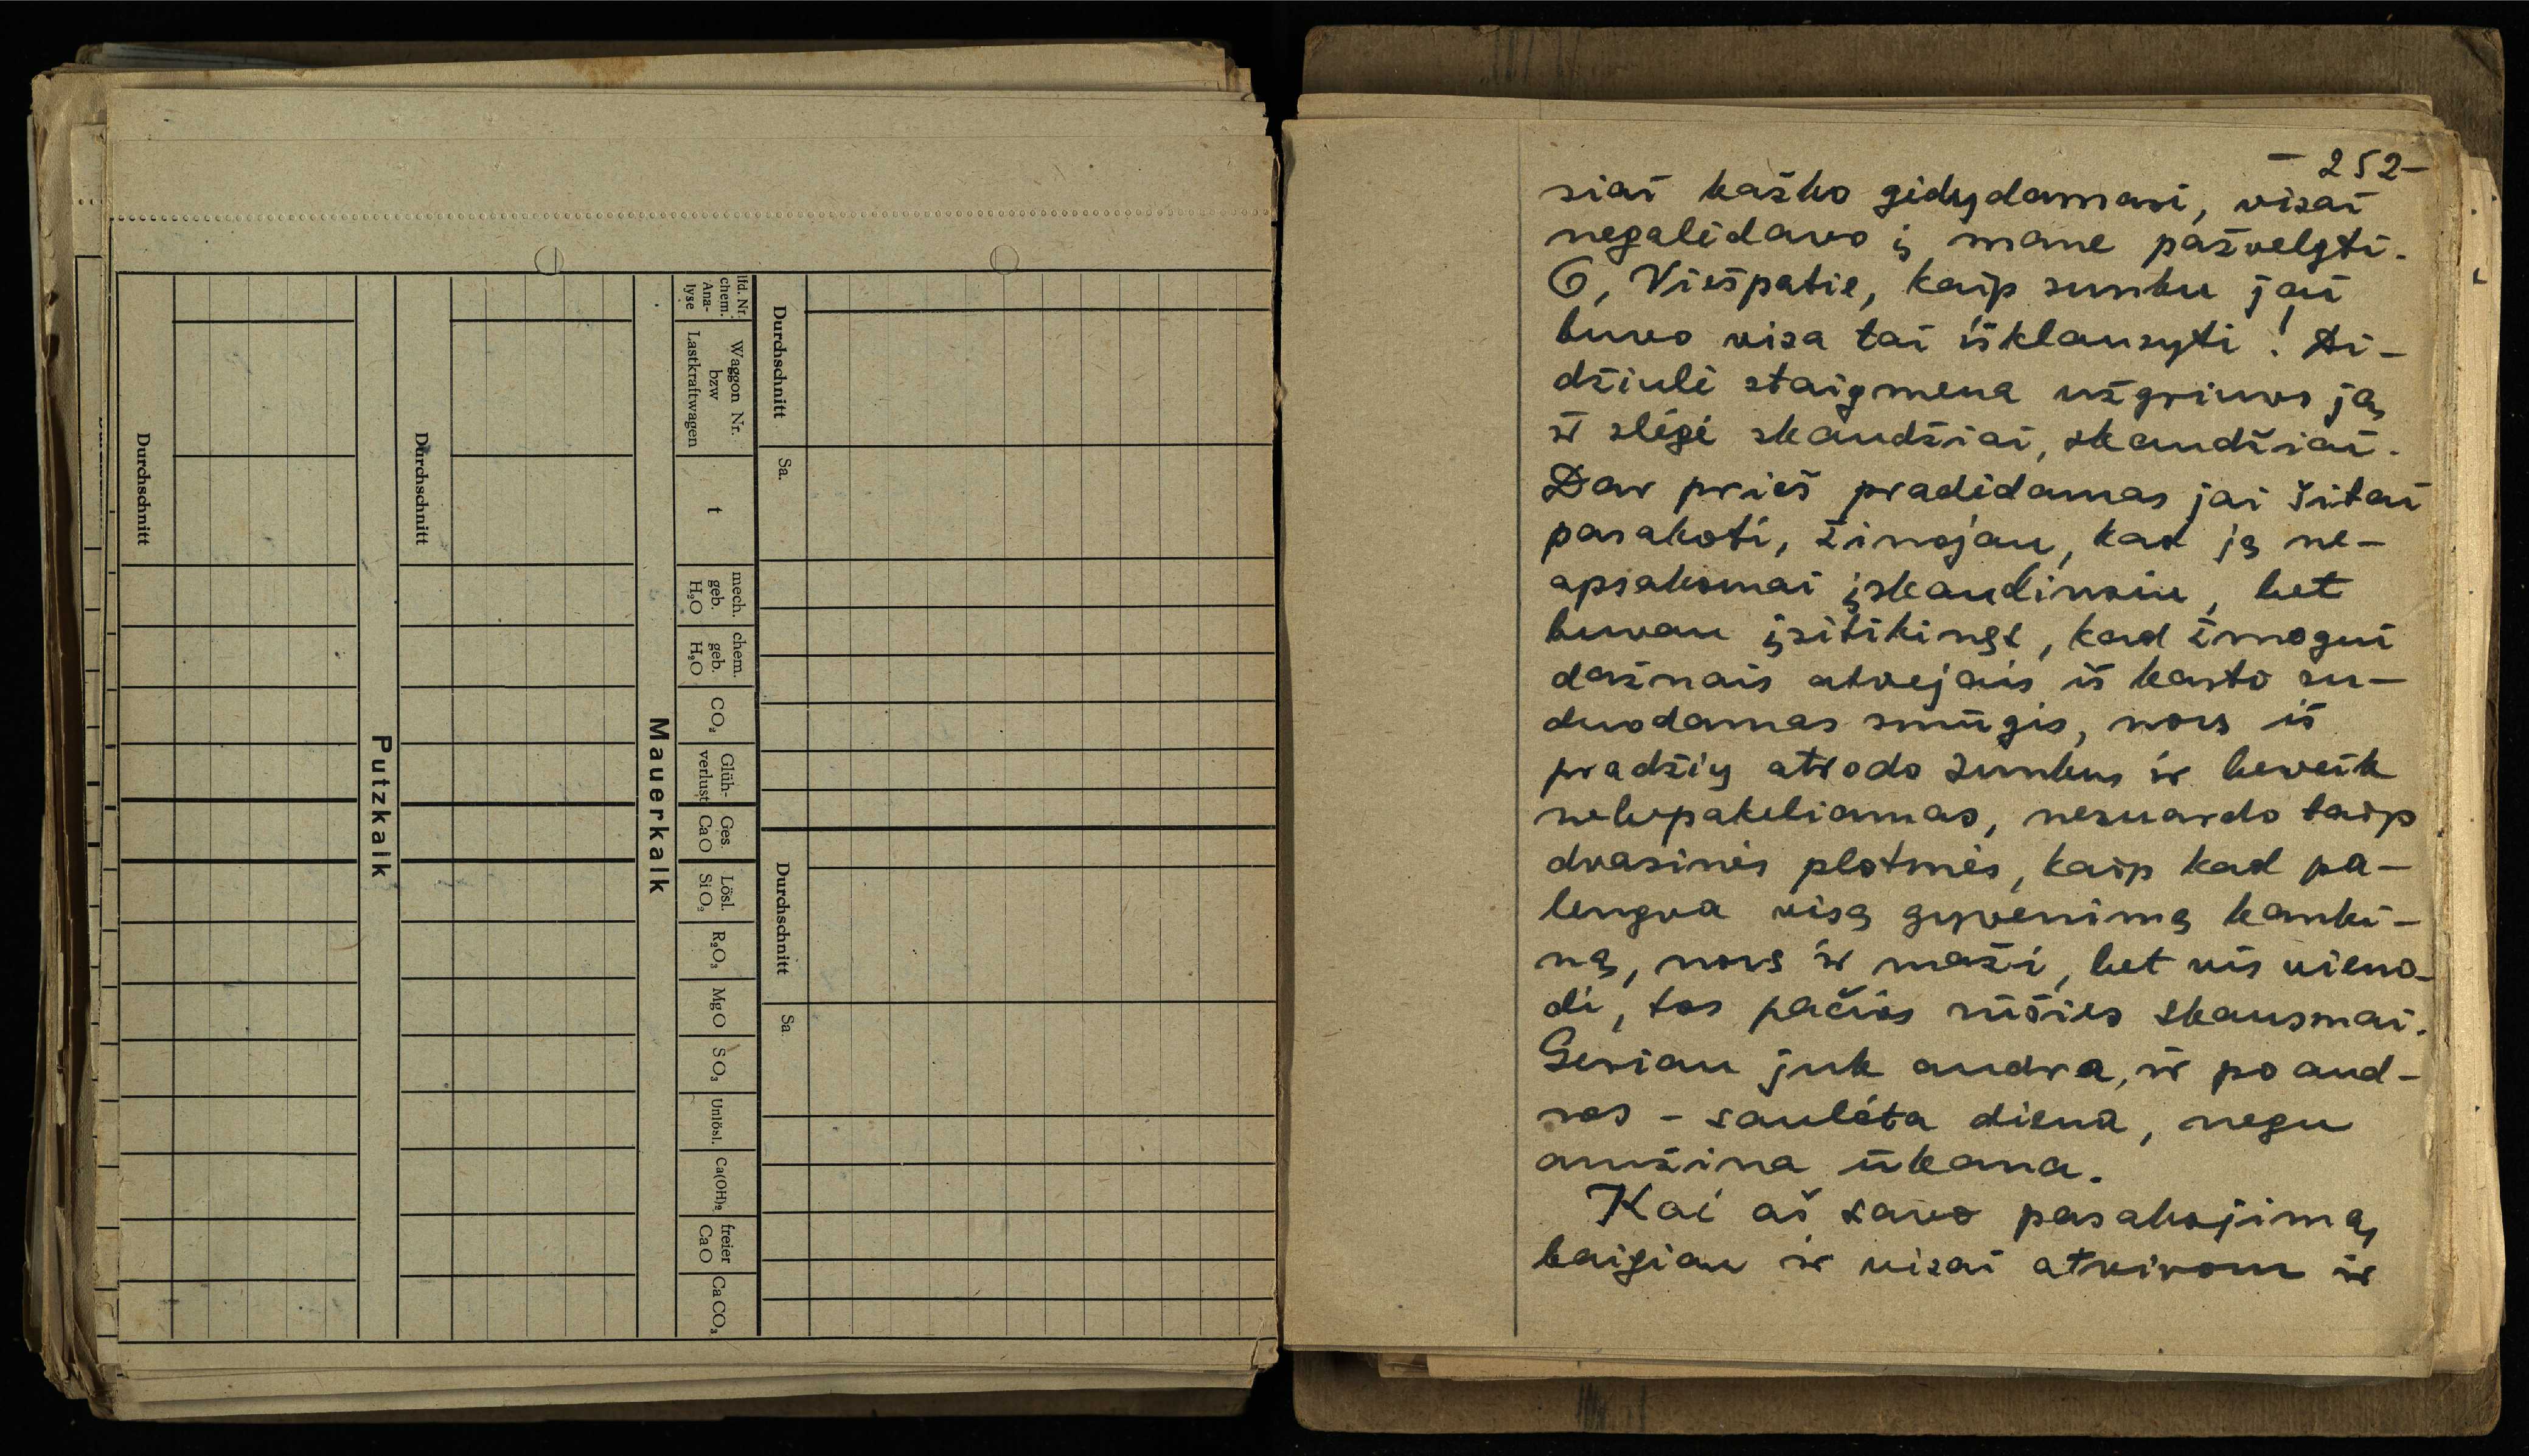 Durchschnitt
Putzkalk
Durchschnitt
Mauerkalk
lfd. Nr. chem. Ana- lyse
Waggon Nr. bzw Lastkraftwagen
t
mech. geb. H₂O
chem. geb. H₂O
CO₂
Glüh- verlust
Ges. CaO
Lösl. SiO₂
R₂O₃
MgO
SO₃
Unlösl.
Ca(OH)₂
freier CaO
CaCO₃
Durchschnitt
Sa.
Durchschnitt
Sa.
- 252 -
siai kažko gidydamasi, visai
negalėdavo į mane pažvelgti.
O, Viešpatie, kaip sunku jai
buvo visa tai išklausyti! Di-
džiulė staigmena užgriuvo ją
ir slėgė skaudžiai, skaudžiai.
Dar prieš pradėdamas jai šitai
pasakoti, žinojau, kad ją ne-
apsakomai įskaudinsiu, bet
buvau įsitikinęs, kad žmogui
dažnais atvejais iš karto su-
duodamas smūgis, nors iš
pradžių atrodo sunkus ir beveik
nebepakeliamas, nesuardo taip
dvasinės plotmės, kaip kad pa-
lengva visą gyvenimą kanki-
ną, nors ir maži, bet vis vieno-
di, tos pačios rūšies skausmai.
Geriau juk audra, ir po aud-
ros - saulėta diena, negu
amžina ūkana.
Kai aš savo pasakojimą
baigiau ir visai atvirom ir